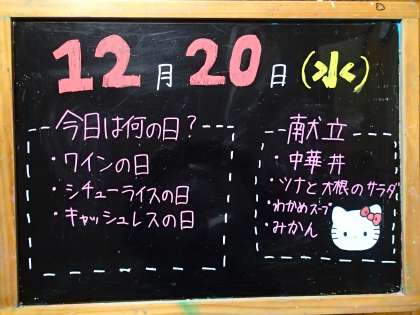 12月20日(水)
今日は何の日?
・ワインの日
・シチューライスの日
・キャッシュレスの日
献立
・中華丼
・ツナと大根のサラダ
・わかめスープ
・みかん